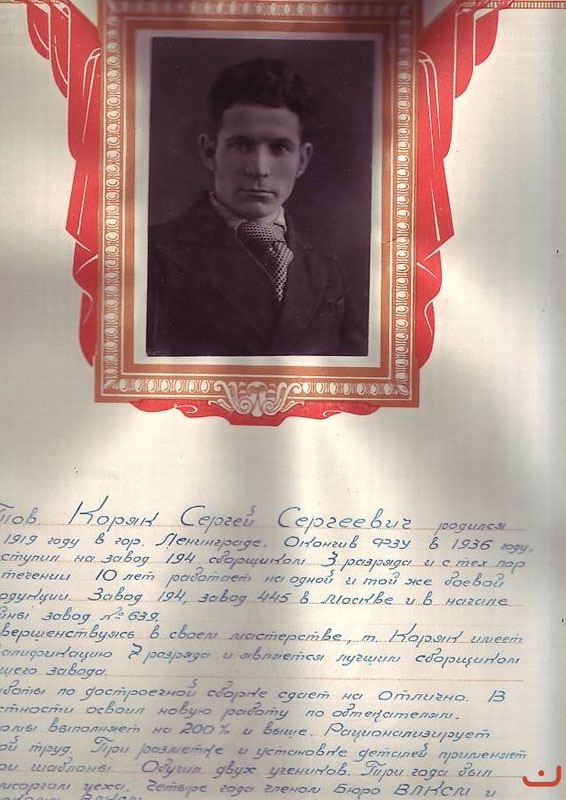 Тов. Коряк Сергей Сергеевич родился
1919 году в гор. Ленинграде. Окончив ФЗУ в 1936 году,
ступил на завод 194 сборщиком 3 разряда и с тех пор
течении 10 лет работает на одной и той же боевой
одукции. Завод 194, завод 445 в Москве и в начале
йны завод № 639.
вершенствуясь в своем мастерстве, т. Коряк имеет
алификацию 7 разряда и является лучшим сборщиком
шего завода.
боты по достроечной сборке сдает на Отлично. В
стности освоил новую работу по обтекателям.
рмы выполняет на 200% и выше. Рационализирует
ой труд. При разметке и установке деталей применяет
ои шаблоны. Обучил двух учеников. Три года был
мсоргом цеха. Четыре года членом Бюро ВЛКСМ и
ВЛКСМ